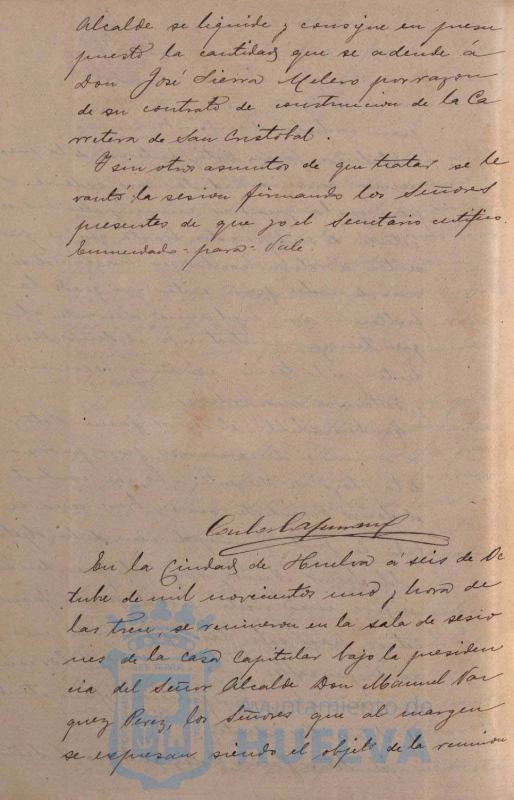 Alcalde se liquide y consigne en presu
puesto la cantidad que se adeude á
Don José Sierra Melero por razon
de su contrato de construccion de la Ca
rretera de San Cristobal.
Y sin otros asuntos de que tratar se le
vantó la sesion firmando los Señores
presentes de que yo el Secretario certifico.
Enmendado - para - Vale
En la Ciudad de Huelva á seis de Oc
tubre de mil novecientos uno y hora de
las tres, se reunieron en la sala de sesio
nes de la casa capitular bajo la presiden
cia del Señor Alcalde Don Manuel Vaz
quez Perez, los Señores que al margen
se expresan siendo el objeto de la reunion
Ayuntamiento de
HUELVA